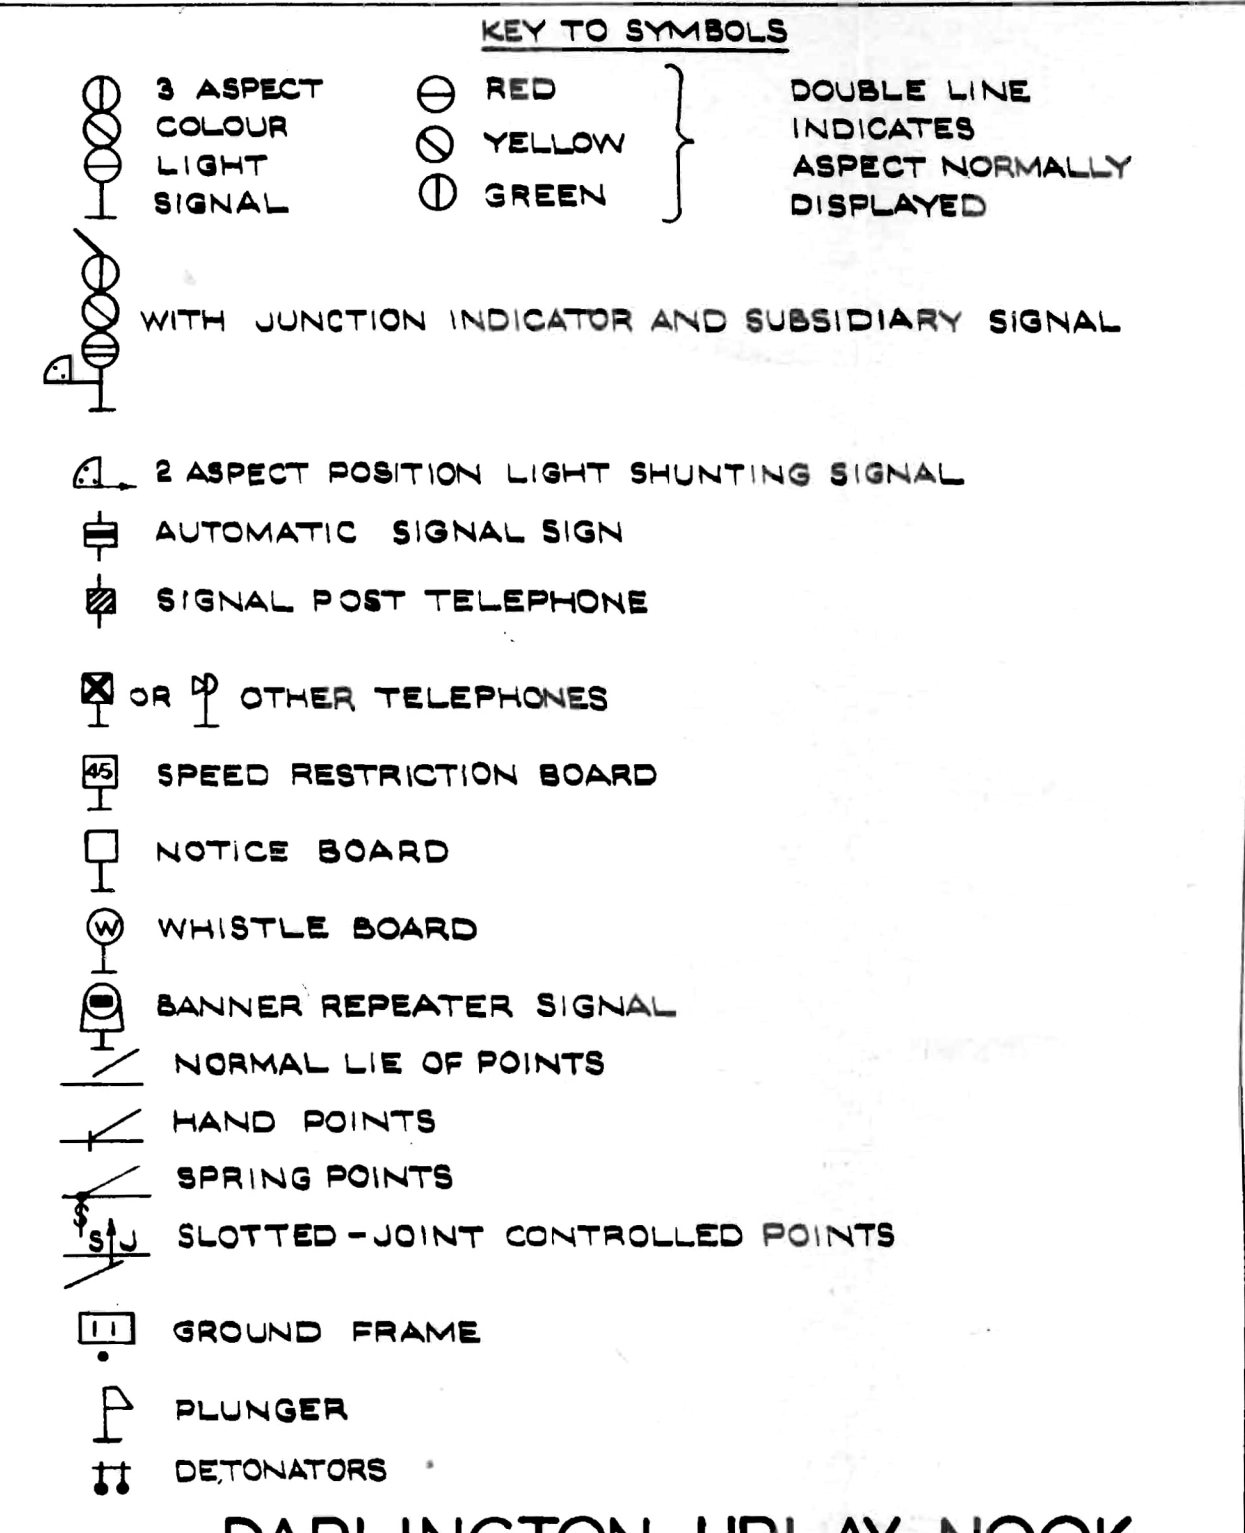 KEY TO SYMBOLS
3 ASPECT
COLOUR
LIGHT
SIGNAL
RED
YELLOW
GREEN
DOUBLE LINE
INDICATES
ASPECT NORMALLY
DISPLAYED
WITH JUNCTION INDICATOR AND SUBSIDIARY SIGNAL
2 ASPECT POSITION LIGHT SHUNTING SIGNAL
AUTOMATIC SIGNAL SIGN
SIGNAL POST TELEPHONE
OR OTHER TELEPHONES
45 SPEED RESTRICTION BOARD
NOTICE BOARD
W WHISTLE BOARD
BANNER REPEATER SIGNAL
NORMAL LIE OF POINTS
HAND POINTS
SPRING POINTS
S
S J SLOTTED-JOINT CONTROLLED POINTS
GROUND FRAME
PLUNGER
DETONATORS
DARLINGTON URLAY NOOK